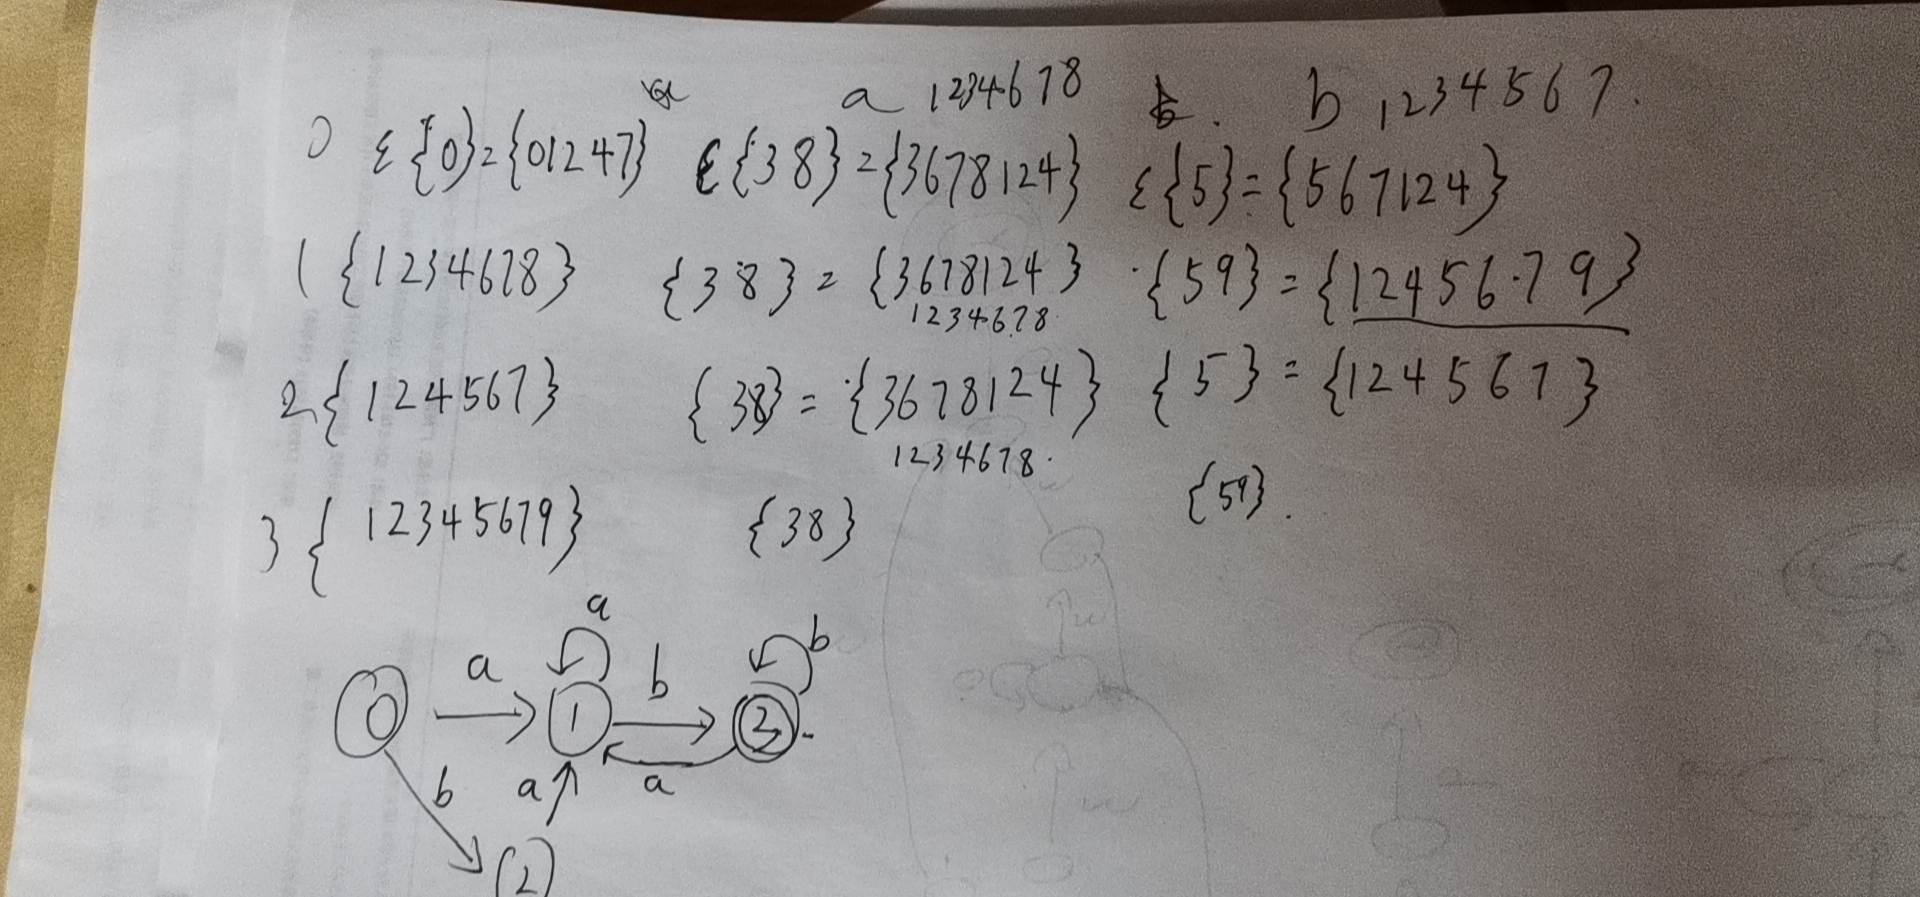 a 1234678 b 1234567.
0 ε{0}={01247} ε{38}={3678124} ε{5}={567124}
1 {1234678} {38}={3678124} {59}={1245679}
1234678
2 {124567} {38}={3678124} {5}={124567}
1234678.
3 {12345679} {38} {59}.
a b
a b
0 1 3
b a a
2